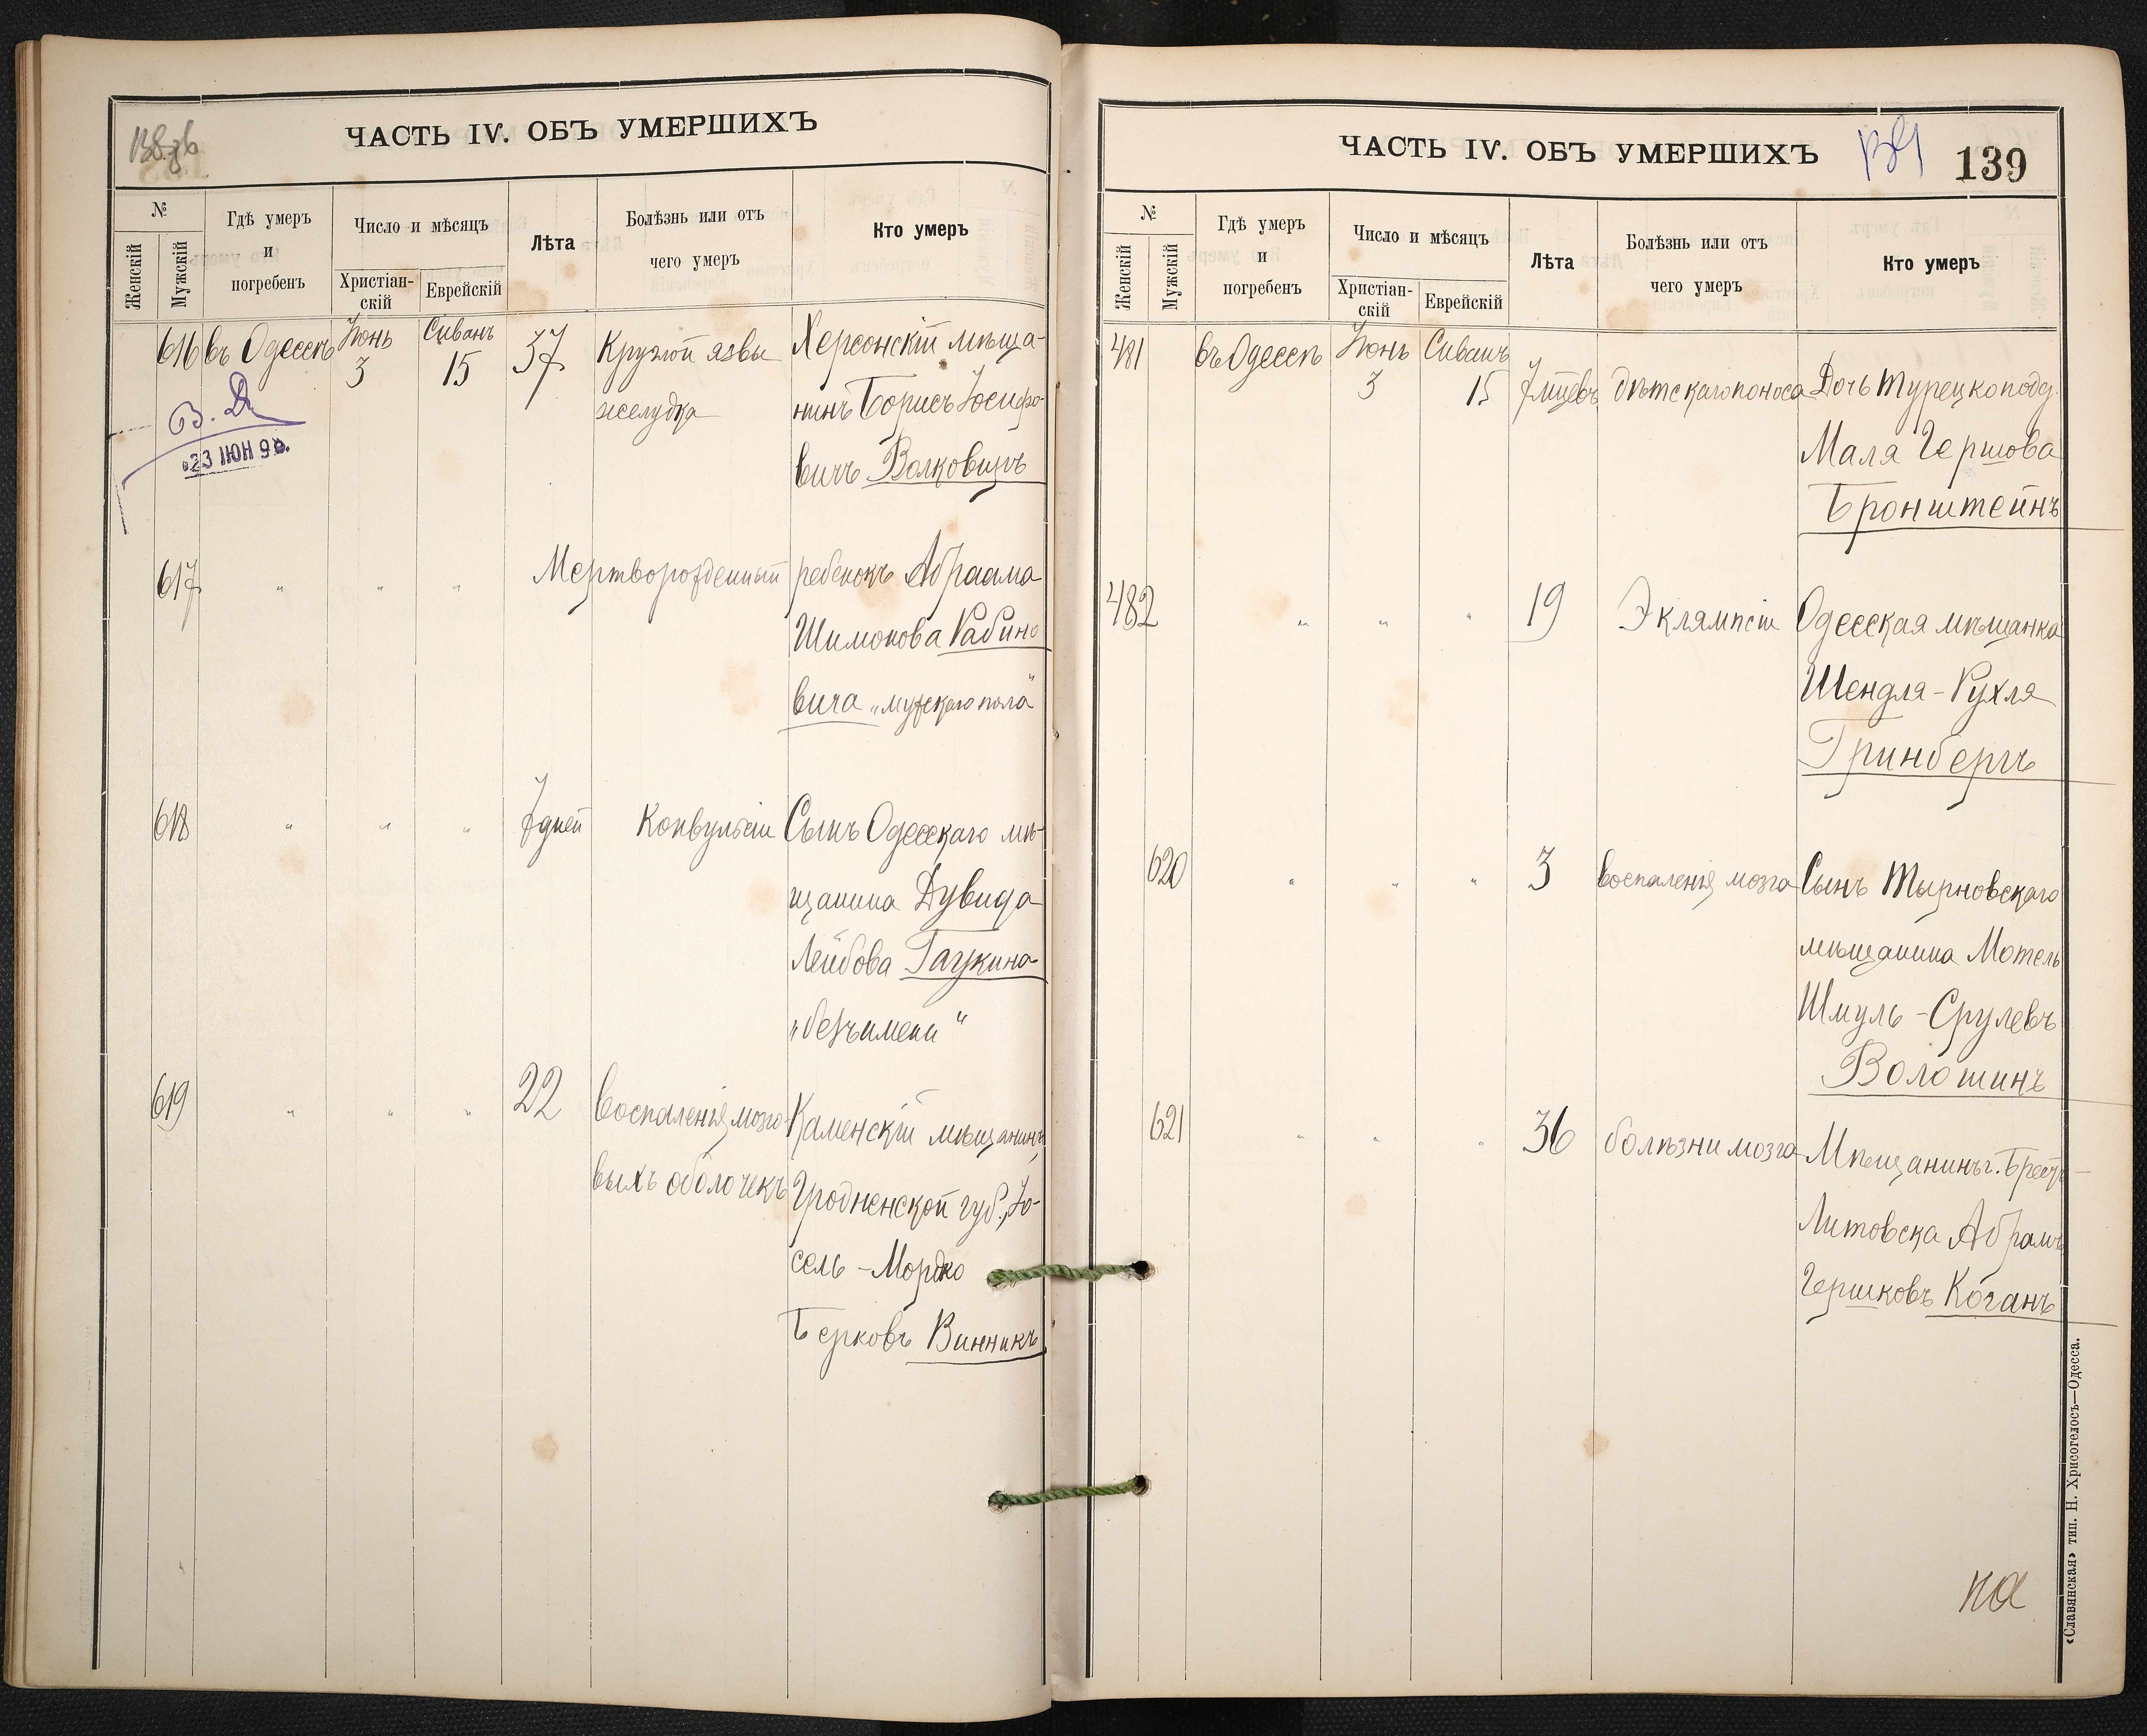 ЧАСТЬ IV. ОБЪ УМЕРШИХЪ
№
Женскій
Мужскій
Гдѣ умеръ
и
погребенъ
Число и мѣсяцъ
Христіан-
скій
Еврейскій
Лѣта
Болѣзнь или отъ
чего умеръ
Кто умеръ
616 въ Одессѣ Іюнь 3 Сиванъ 15 37 Круглой язвы Херсонскій мѣща-
желудка нинъ Борисъ Іосифо-
вичъ Волковичъ
В. Д.
23 ІЮН 9
617 " " " Мертворожденный ребенокъ Абраама
Шимонова Рабино
вича „мужскаго пола"
618 " " " 7 дней Конвульсіи Сынъ Одесскаго мѣ-
щанина Дувида
Лейбова Гаукина
„безъ имени"
619 " " " 22 Воспаленія мозго- Каменскій мѣщанинъ,
выхъ оболочекъ Гродненской губ., Іо-
сель-Мордко
Берковъ Винникъ
ЧАСТЬ IV. ОБЪ УМЕРШИХЪ
139
№
Женскій
Мужскій
Гдѣ умеръ
и
погребенъ
Число и мѣсяцъ
Христіан-
скій
Еврейскій
Лѣта
Болѣзнь или отъ
чего умеръ
Кто умеръ
481 въ Одессѣ Іюнь 3 Сиванъ 15 7 мцевъ дѣтскаго поноса Дочь турецкоподд.
Маля Гершова
Бронштейнъ
482 " " " 19 Эклямпсіи Одесская мѣщанка
Шендля-Рухля
Гринбергъ
620 " " " 3 воспаленія мозга Сынъ Тырновскаго
мѣщанина Мотель
Шмуль-Срулевъ
Волошинъ
621 " " " 36 болѣзни мозга Мѣщанинъ г. Брестъ-
Литовска Абрамъ
Гершковъ Коганъ
на
«Славянская» тип. Н. Хрисогелосъ—Одесса.